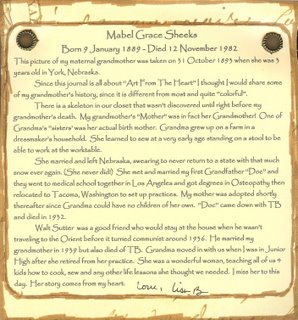 Mabel Grace Sheeks
Born 9 January 1889 - Died 12 November 1982
This picture of my maternal grandmother was taken on 31 October 1893 when she was 3
years old in York, Nebraska.
Since this journal is all about "Art From The Heart" I thought I would share some
of my grandmother's history, since it is different from most and quite "colorful".
There is a skeleton in our closet that wasn't discovered until right before my
grandmother's death. My grandmother's "Mother" was in fact her Grandmother! One of
Grandma's "sisters" was her actual birth mother. Grandma grew up on a farm in a
dressmaker's household. She learned to sew at a very early age standing on a stool to be
able to work at the worktable.
She married and left Nebraska, swearing to never return to a state with that much
snow ever again. (She never did!) She met and married my first Grandfather "Doc" and
they went to medical school together in Los Angeles and got degrees in Osteopathy then
relocated to Tacoma, Washington to set up practices. My mother was adopted shortly
thereafter since Grandma could have no children of her own. "Doc" came down with TB
and died in 1932.
Walt Sutter was a good friend who would stay at the house when he wasn't
traveling to the Orient before it turned communist around 1936. He married my
grandmother in 1939 but also died of TB. Grandma moved in with us when I was in Junior
High after she retired from her practice. She was a wonderful woman, teaching all of us 4
kids how to cook, sew and any other life lessons she thought we needed. I miss her to this
day. Her story comes from my heart. Love, Lisa B